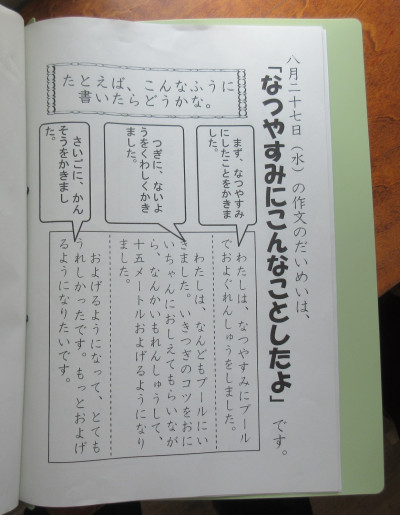 八月二十七日（水）の作文のだいめいは、
「なつやすみにこんなことしたよ」
です。
たとえば、こんなふうに
書いたらどうかな。
まず、なつやすみ
にしたことをかきま
した。
つぎに、ないよ
うをくわしくかき
ました。
さいごに、かん
そうをかきまし
た。
わたしは、なつやすみにプール
でおよぐれんしゅうをしました。
わたしは、なんどもプールにい
きました。いきつぎのコツをおに
いちゃんにおしえてもらいなが
ら、なんかいもれんしゅうして、
十五メートルおよげるようになり
ました。
およげるようになって、とても
うれしかったです。もっとおよげ
るようになりたいです。